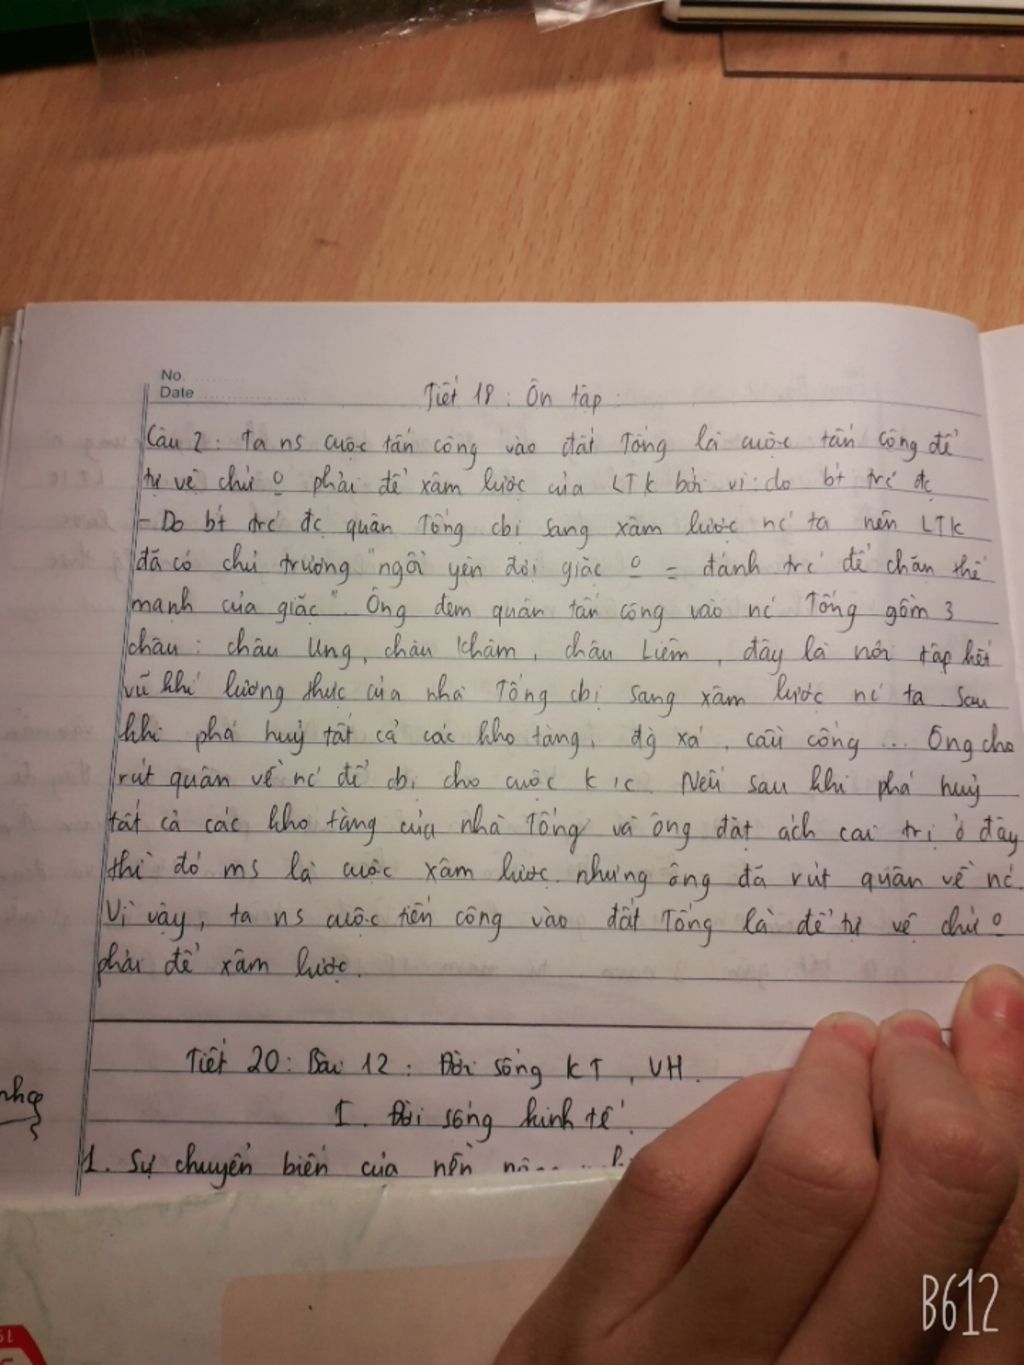 No.
Date
Tiết 18 : Ôn tập :
Câu 2 : Ta ns cuộc tấn công vào đất Tống là cuộc tấn công để
tự vệ chứ o phải để xâm lược của LTK bởi vì : do bt trc đc
- Do bt trc đc quân Tống cbị sang xâm lược nc ta nên LTK
đã có chủ trương "ngồi yên đợi giặc o = đánh trc để chặn thế
mạnh của giặc". Ông đem quân tấn công vào nc Tống gồm 3
châu : châu Ung, châu Khâm, châu Liêm, đây là nơi tập hết
vũ khí lương thực của nhà Tống cbị sang xâm lược nc ta. Sau
khi phá huỷ tất cả các kho tàng, đg xá, cầu cống ... Ông cho
rút quân về nc để cbị cho cuộc k/c. Nếu sau khi phá huỷ
tất cả các kho tàng của nhà Tống và ông đặt ách cai trị ở đây
thì đó ms là cuộc xâm lược. nhưng ông đã rút quân về nc.
Vì vậy, ta ns cuộc tiến công vào đất Tống là để tự vệ chứ o
phải để xâm lược.
Tiết 20 : Bài 12 : Đời sống KT, VH.
I. Đời sống kinh tế.
1. Sự chuyển biến của nền
B612